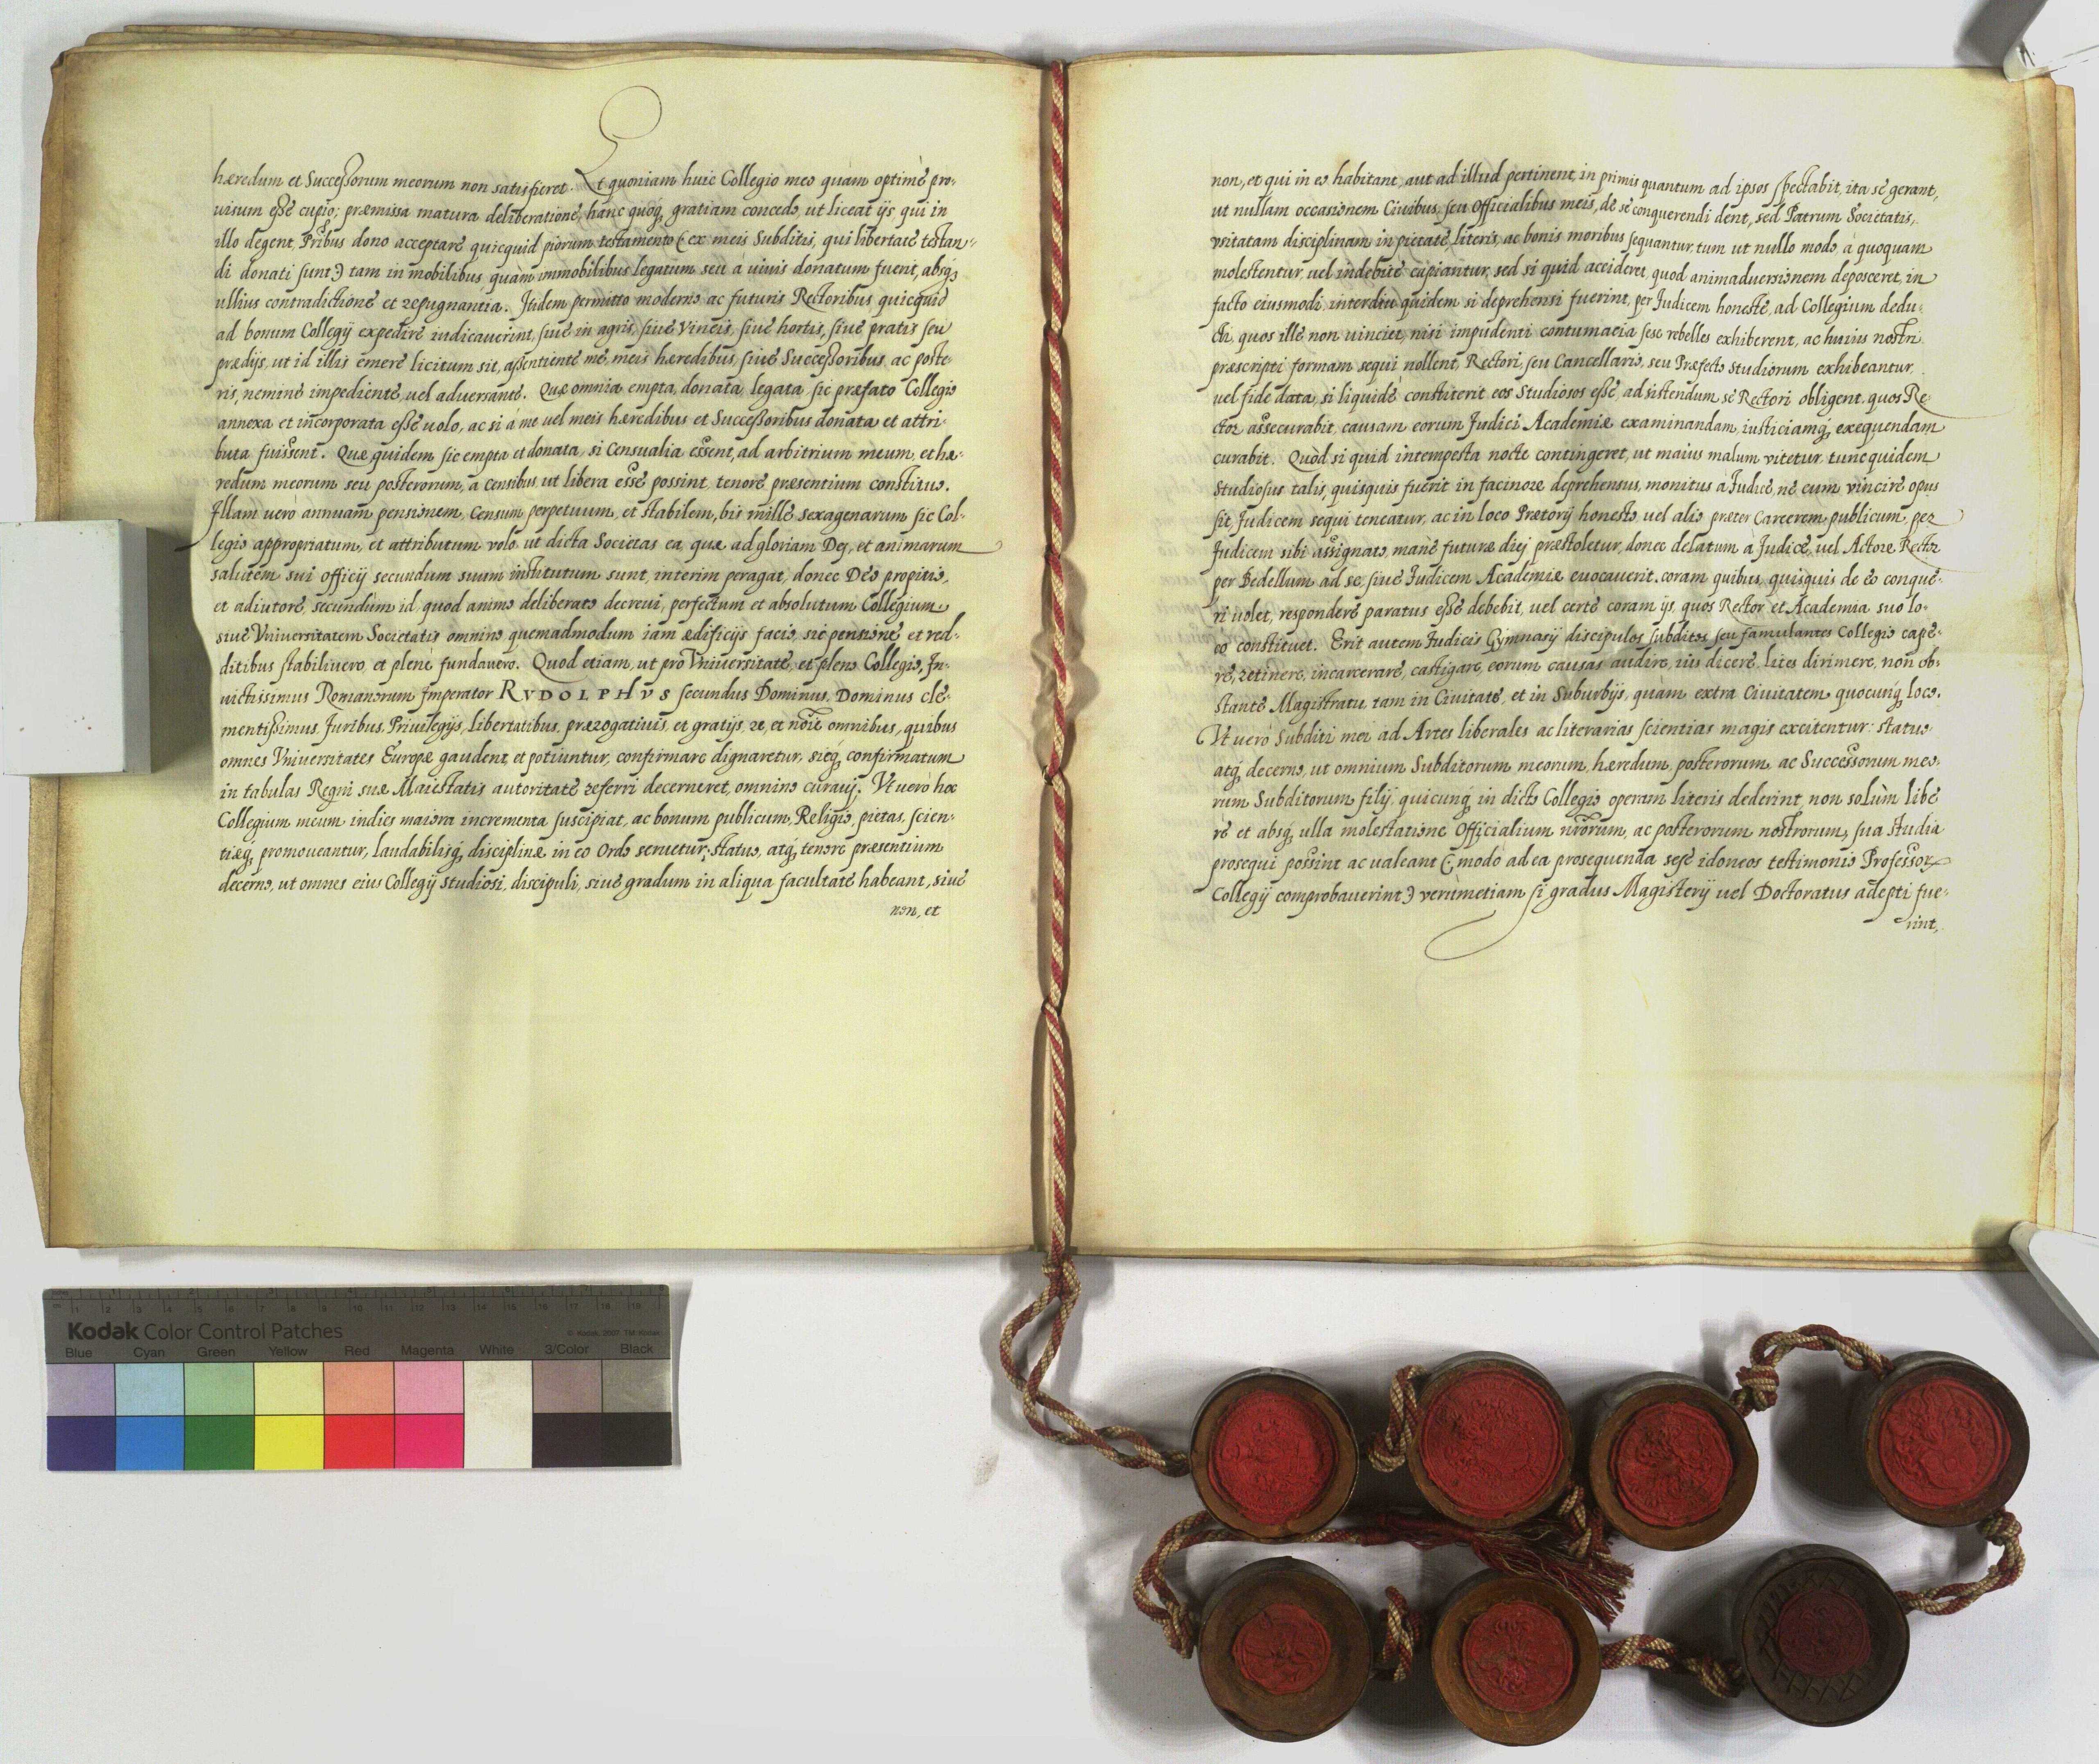 hæredum et Successorum meorum non satisfieret. Et quoniam huic Collegio meo quàm optimè pro-
uisum esse cupio; præmissa matura deliberatione, hanc quoq₃ gratiam concedo, ut liceat ijs qui in
illo degent, Pribus dono acceptare quicquid piorum testamento (: ex meis Subditis, qui libertate testan-
di donati sunt :) tam in mobilibus quàm immobilibus legatum seu à uiuis donatum fuerit, absq₃
ullius contradictione et repugnantia. Itidem permitto modernis ac futuris Rectoribus quicquid
ad bonum Collegij expedire iudicauerint, siue in agris, siue Vineis, siue hortis, siue pratis seu
prædijs, ut id illis emere licitum sit, assentiente me, meis hæredibus, siue Successoribus, ac poste-
ris, nemine impediente, uel aduersante. Quæ omnia empta, donata, legata, sic præfato Collegio
annexa et incorporata esse uolo, ac si à me uel meis hæredibus et Successoribus donata et attri-
buta fuissent. Quæ quidem sic empta et donata, si Censualia essent, ad arbitrium meum, et hæ-
redum meorum seu posterorum, à censibus ut libera esse possint, tenore præsentium constituo.
Illam uerò annuam pensionem, Censum perpetuum, et stabilem, bis mille sexagenarum sic Col-
legio appropriatum, et attributum volo, ut dicta Societas ea, quæ ad gloriam Dej, et animarum
salutem sui officij secundum suum institutum sunt, interim peragat, donec Deo propitio,
et adiutore, secundùm id, quod animo deliberato decreui, perfectum et absolutum Collegium
siue Vniuersitatem Societatis omnino, quemadmodum iam ædificijs facio, sic pensione et red-
ditibus stabiliuero, et plenè fundauero. Quod etiam, ut pro Vniuersitate, et pleno Collegio, In-
uictissimus Romanorum Imperator RVDOLPHVS secundus Dominus, Dominus cle-
mentissimus Juribus, Priuilegijs, libertatibus, prærogatiuis, et gratijs, re, et noïe omnibus, quibus
omnes Vniuersitates Europæ gaudent, et potiuntur, confirmare dignaretur, sicq₃ confirmatum
in tabulas Regni suæ Maiestatis autoritate referri decerneret, omnino curauj. Vt uerò hoc
Collegium meum indies maiora incrementa suscipiat, ac bonum publicum, Religio, pietas, scien-
tiæq₃ promoueantur, laudabilisq₃ disciplinæ in eo Ordo seruetur; statuo, atq₃ tenore præsentium
decerno, ut omnes eius Collegij studiosi, discipuli, siue gradum in aliqua facultate habeant, siue
non, et
non, et qui in eo habitant, aut ad illud pertinent, in primis quantum ad ipsos spectabit, ita se gerant,
ut nullam occasionem Ciuibus, seu Officialibus meis, de se conquerendi dent, sed Patrum Societatis,
vsitatam disciplinam in pietate, literis, ac bonis moribus sequantur, tum ut nullo modo à quoquam
molestentur, uel indebitè capiantur, sed si quid accideret, quod animaduersionem deposceret, in
facto eiusmodi interdiu quidem si deprehensi fuerint, per Judicem honestè, ad Collegium dedu-
cti, quos ille non uinciet, nisi impudenti contumacia sese rebelles exhiberent, ac huius nostri
præscripti formam sequi nollent, Rectori, seu Cancellario, seu Præfecto studiorum exhibeantur,
uel fide data, si liquidè constiterit eos Studiosos esse, ad sistendum se Rectori obligent. quos Re-
ctor assecurabit, causam eorum Judici Academiæ examinandam, iusticiamq₃ exequendam
curabit. Quòd si quid intempesta nocte contingeret, ut maius malum vitetur, tunc quidem
Studiosus talis, quisquis fuerit in facinore deprehensus, monitus à Judice, ne eum vincire opus
sit, Judicem sequi teneatur, ac in loco Prætorij honesto, uel alio præter Carcerem publicum, per
Judicem sibi assignato, mane futuræ diej præstoletur, donec delatum à Judice, uel Actore Rector
per Bedellum ad se, siue Judicem Academiæ euocauerit. coram quibus, quisquis de eo conque-
ri uolet, respondere paratus esse debebit, uel certè coram ijs, quos Rector et Academia suo lo-
co constituet. Erit autem Judicis Gymnasij discipulos subditos seu famulantes Collegio cape-
re, retinere, incarcerare, castigare, eorum causas audire, ius dicere, lites dirimere, non ob-
stante Magistratu, tam in Ciuitate, et in Suburbijs, quàm extra Ciuitatem quocunq₃ loco.
Vt uerò Subditi mei ad Artes liberales ac literarias scientias magis excitentur: statuo
atq₃ decerno, ut omnium Subditorum meorum, hæredum, posterorum, ac Successorum meo-
rum Subditorum filij, quicunq₃ in dicto Collegio operam literis dederint, non solùm libe-
re et absq₃ ulla molestatione Officialium nrorum, ac posterorum nostrorum, sua studia
prosequi possint ac ualeant (: modò ad ea prosequenda sese idoneos testimonio Professor
Collegij comprobauerint :) verùmetiam si gradus Magisterij uel Doctoratus adepti fue-
rint,
Kodak Color Control Patches
© Kodak, 2007. TM: Kodak
Blue Cyan Green Yellow Red Magenta White 3/Color Black